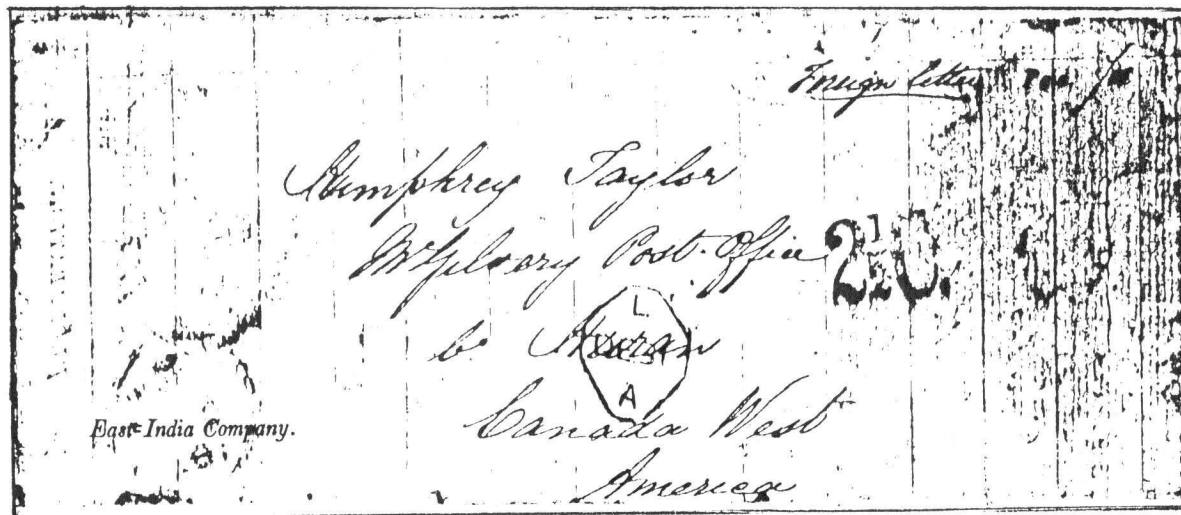 Foreign letter Pd
Humphrey Taylor
McGilvery Post-Office
Co Huron
Canada West
America
L
A
East-India Company.